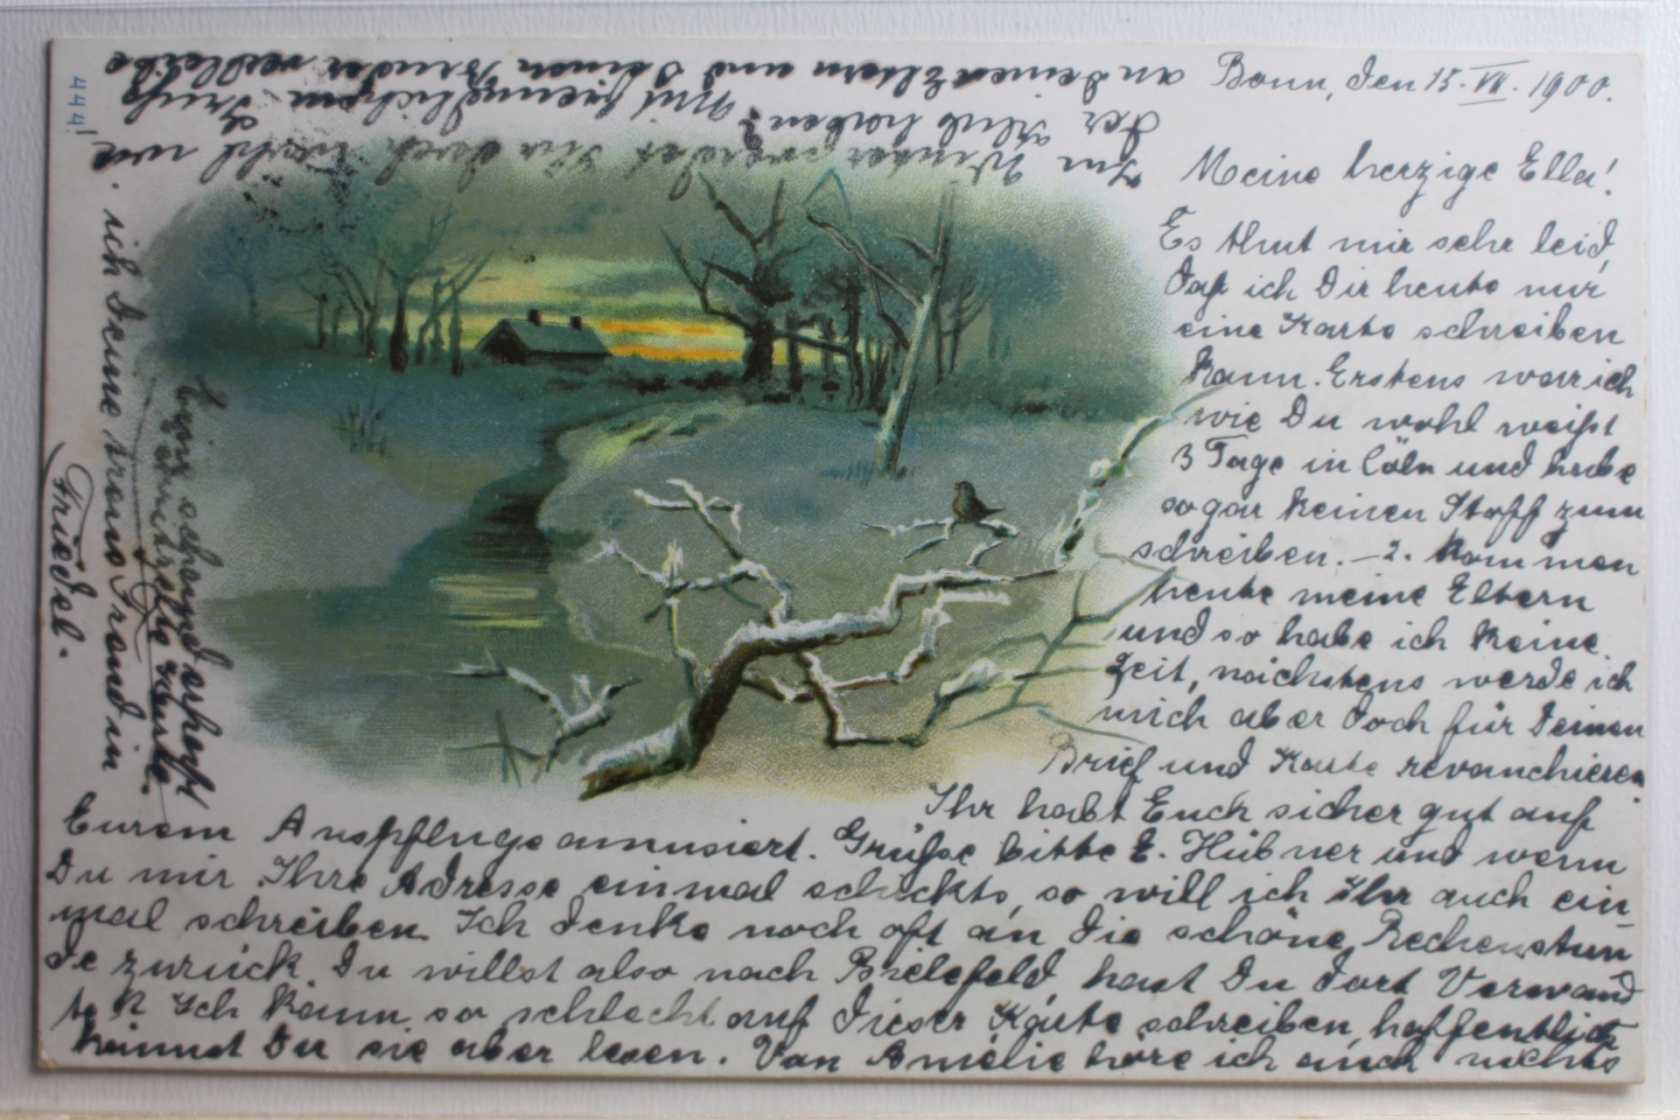 Bonn, den 15. VII. 1900.
Meine herzige Ella!
Es thut mir sehr leid,
daß ich Dir heute nur
eine Karte schreiben
kann. Erstens war ich
wie Du wohl weißt
3 Tage in Cöln und habe
sogar keinen Stoff zum
schreiben. – 2. kommen
heute meine Eltern
und so habe ich keine
Zeit, nächstens werde ich
mich aber doch für Deinen
Brief und Karte revanchieren
Ihr habt Euch sicher gut auf
Eurem Auspfluge amusiert. Grüße bitte E. Hübner und wenn
Du mir Ihre Adresse einmal schickts, so will ich Ihr auch ein
mal schreiben. Ich denke noch oft an die schöne Rechenstun
de zurück. Du willst also nach Bielefeld, hast Du dort Verwand
te? Ich kann so schlecht auf dieser Karte schreiben, hoffentlich
kannst Du sie aber lesen. Von Amélie höre ich auch nichts
Im Winter werdet Ihr doch wohl wie
der Club haben? Mit freundlichem Gruß
an Deine Eltern und Deinen Bruder verbleibe
ich Deine treue Freundin
Friedel.
444!